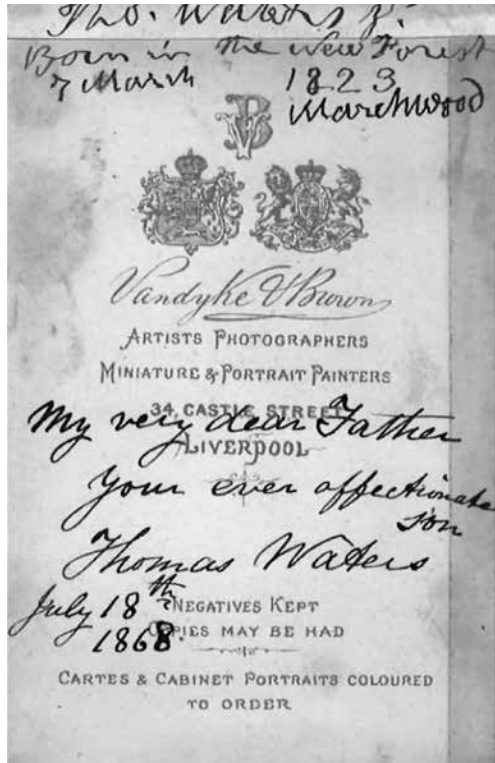 Tho. Waters
Born in the New Forest
7 March 1823
Marchwood
VB
Vandyke & Brown
ARTISTS PHOTOGRAPHERS
MINIATURE & PORTRAIT PAINTERS
34, CASTLE STREET
My very dear Father
LIVERPOOL
Your ever affectionate
son
Thomas Waters
July 18th
NEGATIVES KEPT
1868.
COPIES MAY BE HAD
CARTES & CABINET PORTRAITS COLOURED
TO ORDER